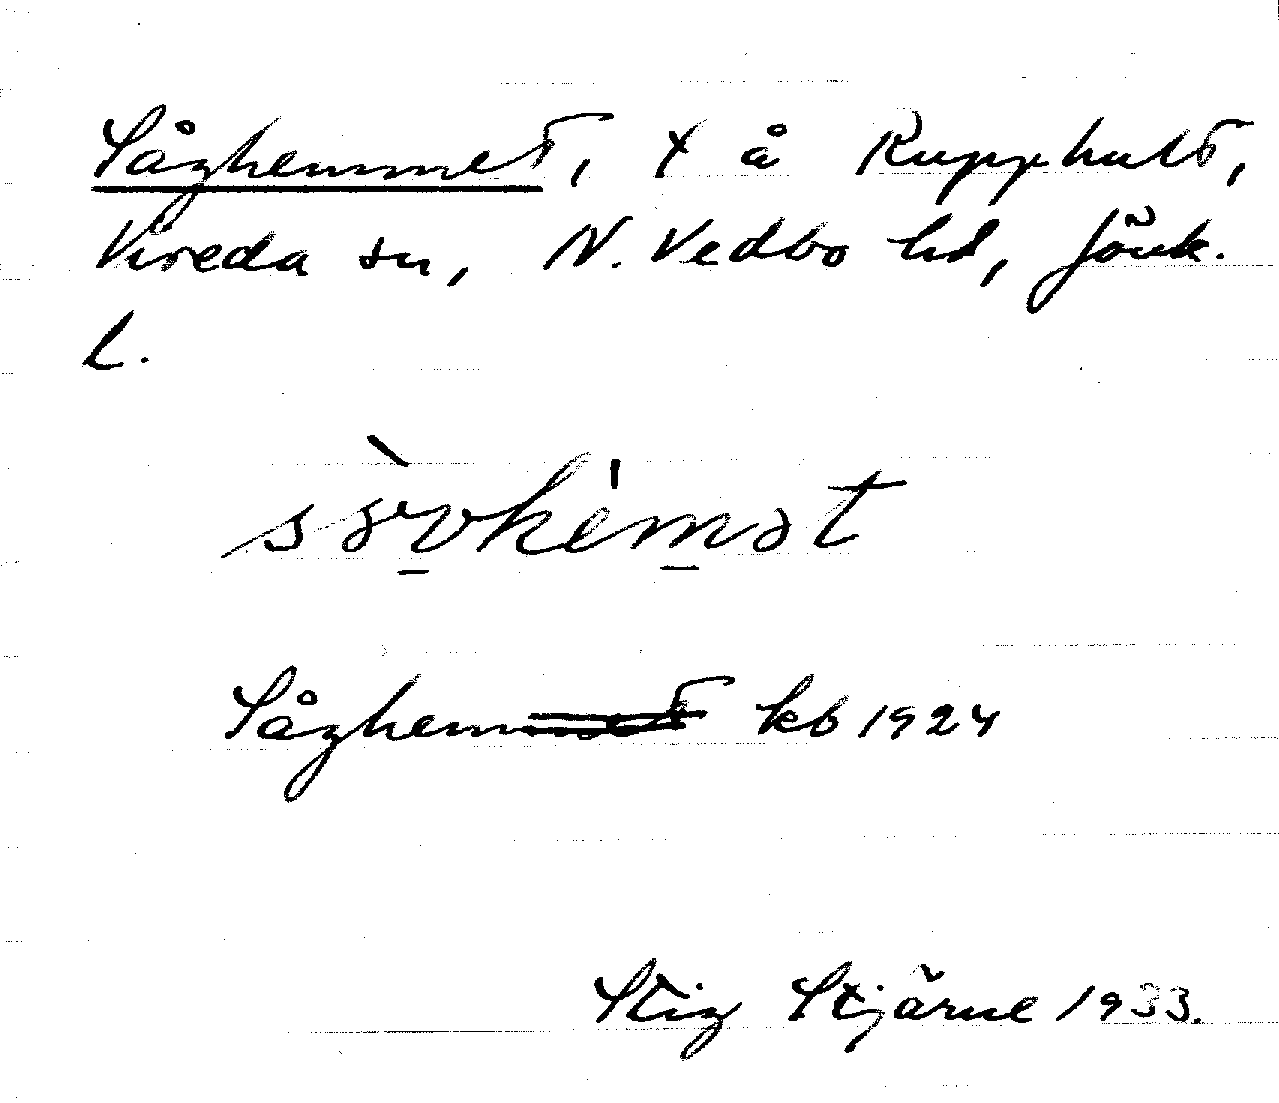 Såghemmet, x å Rupphult,
Vireda sn, N. Vedbo hd, Jönk.
l.
Såghemmet kb 1924
Stig Stjärne 1933.